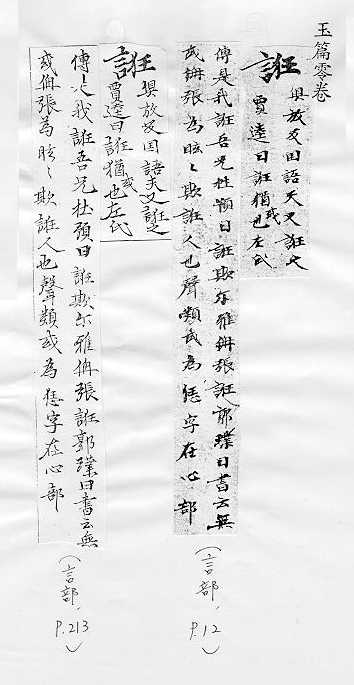 玉篇零卷
誑 俱放反国語天又誑之
賈逵曰誑猶或也左氏
傳是我誑吾兄杜預曰誑欺尔雅侜張誑郭璞曰書云無
或侜張為眩〻欺誑人也聲類或為惩字在心部
(言部, P.12)
誑 俱放反国語夫又誑之
賈逵曰誑猶或也左氏
傳之我誑吾兄杜預曰誑欺尔雅侜張誑郭璞曰書云無
或侜張為眩〻欺誑人也聲類或為惩字在心部
(言部, P.213)